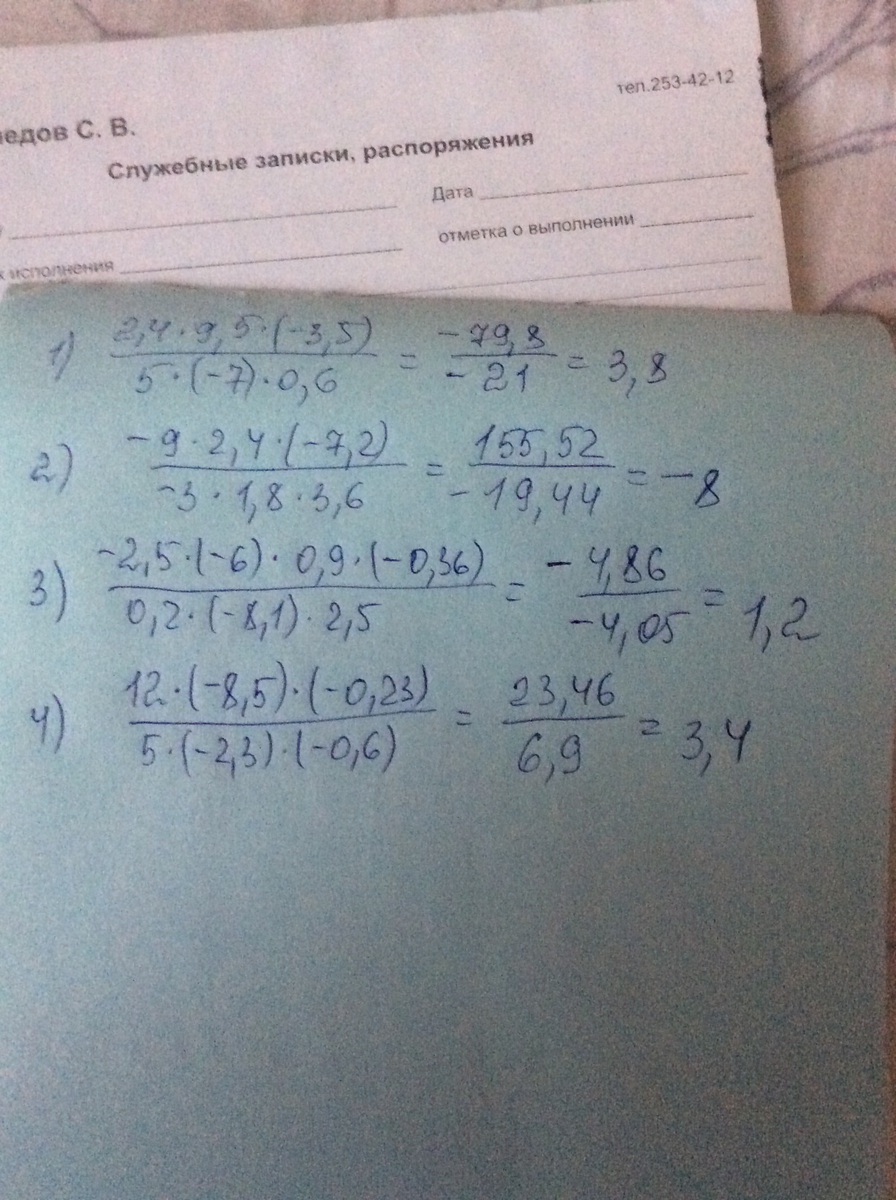 тел.253-42-12
С. В.
Служебные записки, распоряжения
Дата
исполнения
отметка о выполнении
1) 2,4·9,5·(-3,5) / 5·(-7)·0,6 = -79,8 / -21 = 3,8
2) -9·2,4·(-7,2) / -3·1,8·3,6 = 155,52 / -19,44 = -8
3) -2,5·(-6)·0,9·(-0,36) / 0,2·(-8,1)·2,5 = -4,86 / -4,05 = 1,2
4) 12·(-8,5)·(-0,23) / 5·(-2,3)·(-0,6) = 23,46 / 6,9 = 3,4